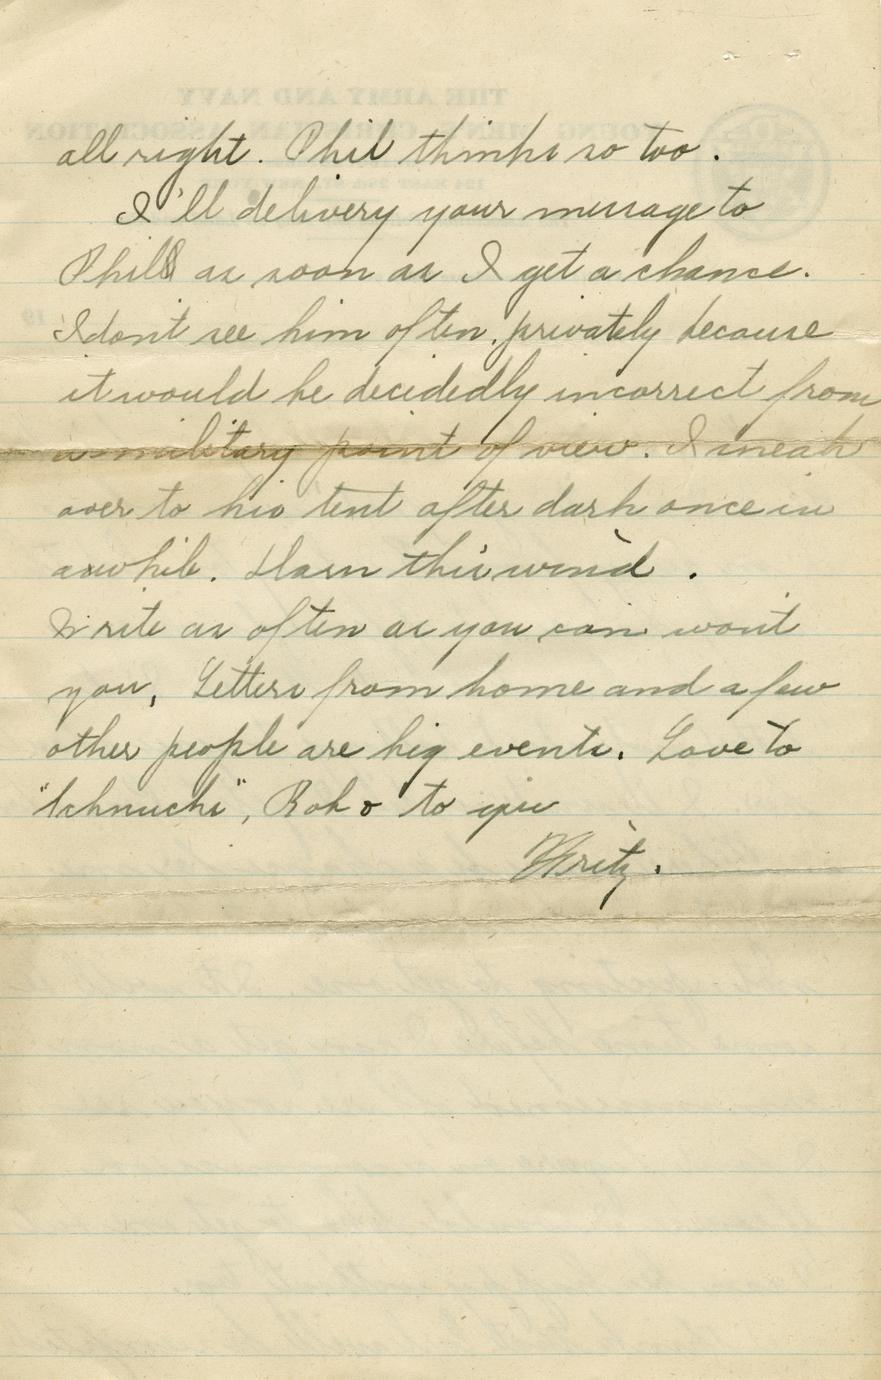 all right. Phil thinks so too.
I'll delivery your message to
Phil as soon as I get a chance.
I dont see him often, privately because
it would be decidedly incorrect from
a military point of view. I sneak
over to his tent after dark once in
awhile. Darn this wind.
Write as often as you can wont
you, Letters from home and a few
other people are big events. Love to
"Schnucki", Bob to you
Fritz.